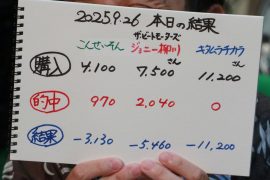 2025.9.26 本日の結果
こんせいそん
ザ・ビートモーターズ
ジョニー柳川さん
キタムラチカラさん
購入 4,100 7,500 11,200
的中 970 2,040 0
結果 -3,130 -5,460 -11,200